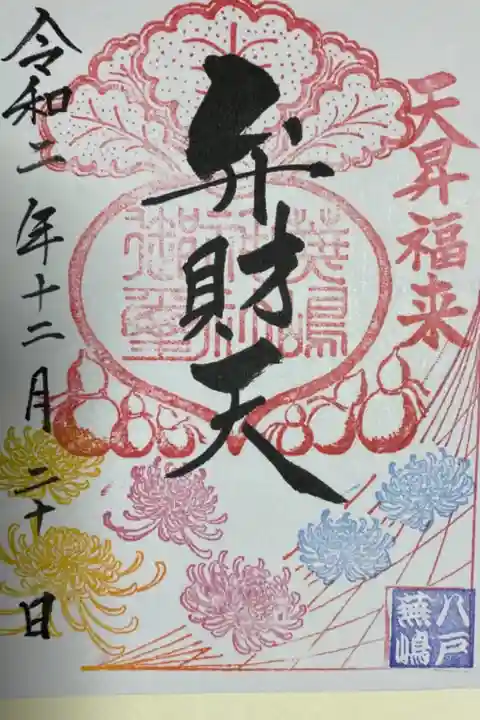 天昇福来
八戸
蕪嶋
蕪嶋
神社
御璽
弁財天
令和二年十二月二十日